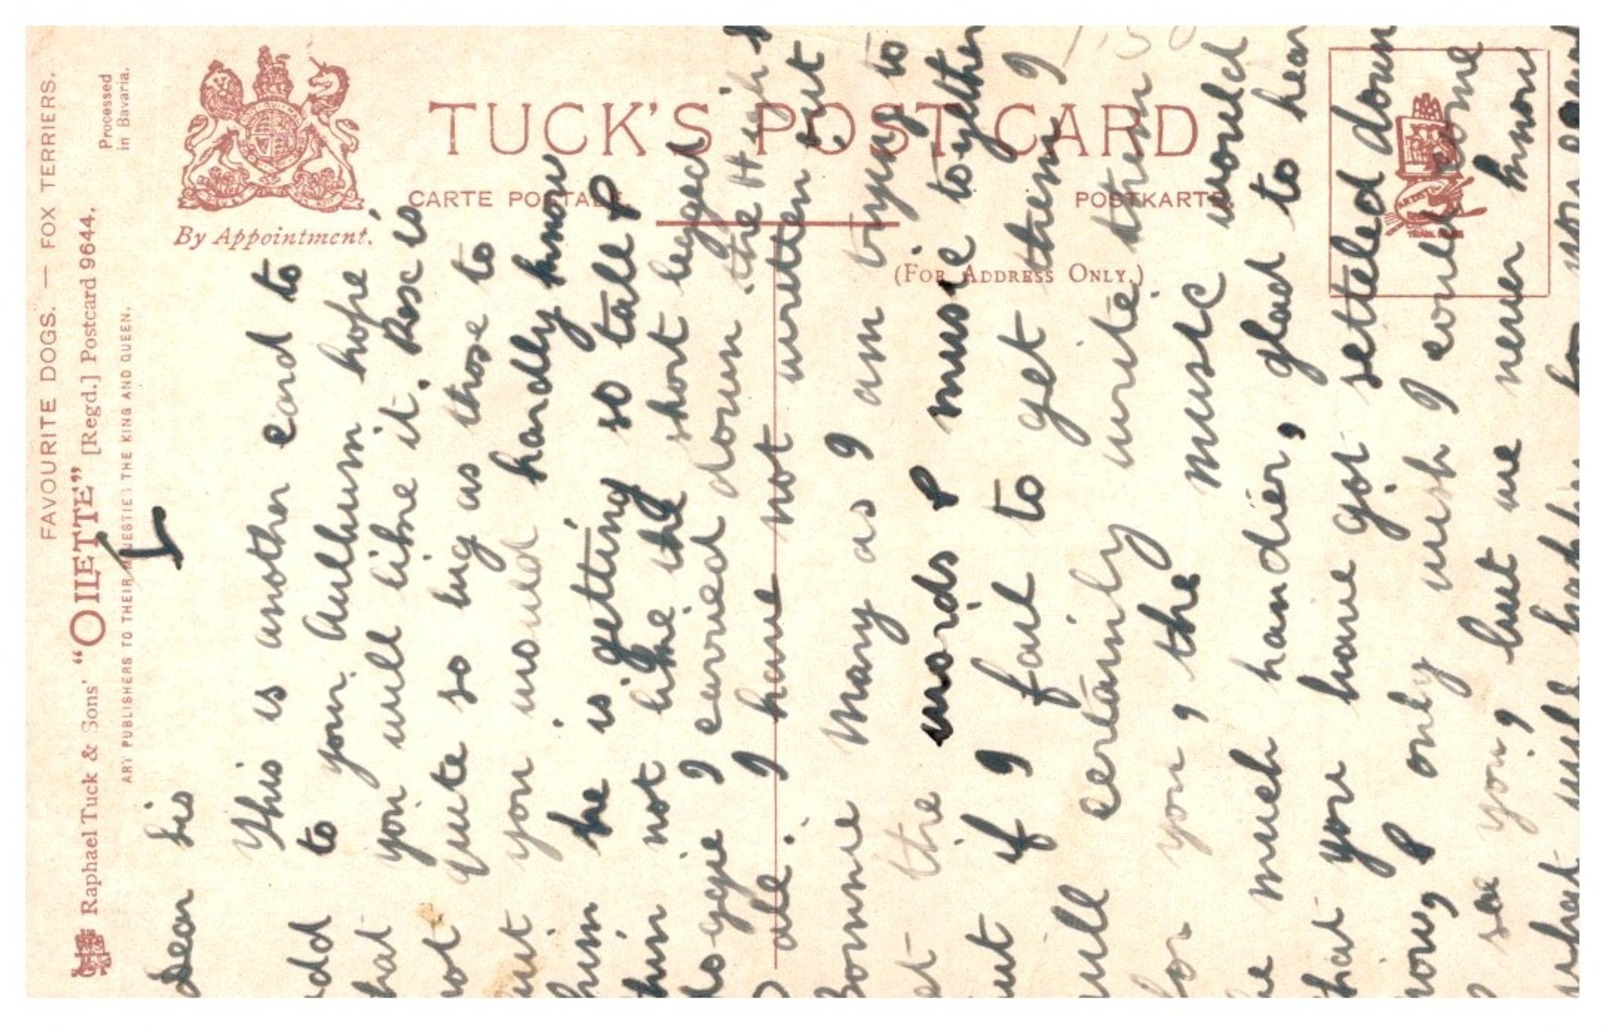 TUCK'S POST CARD
CARTE POSTALE.
POSTKARTE.
(FOR ADDRESS ONLY.)
By Appointment.
FAVOURITE DOGS. — FOX TERRIERS.
Raphael Tuck & Sons' "OILETTE" [Regd.] Postcard 9644.
ART PUBLISHERS TO THEIR MAJESTIES THE KING AND QUEEN.
Processed
in Bavaria.
Dear Sis
This is another card to
add to your Aulbum hope
that you will like it. Rose is
not quite so big as those to
but you would hardly know
him he is getting so tall &
thin not like the short leged
dogie I carried down the High St
I have not written out
Bonnie Mary as I am trying to
get the words & music together
but if I fail to get them I
will certainly write them
for you, the music would
be much handier, glad to hear
that you have got settled down
now, & only wish I could come
& see you, but we never know
what will